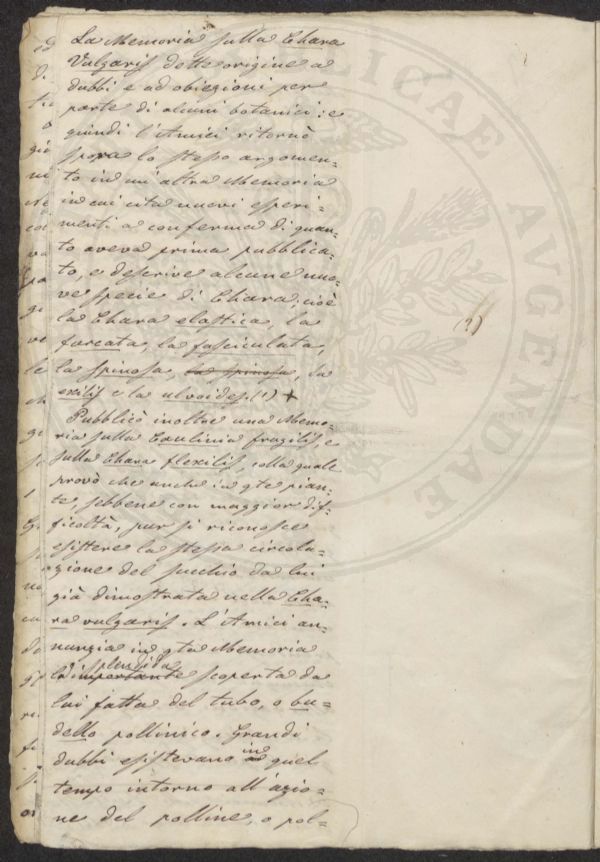 La Memoria sulla Chara
Vulgaris dette origine a
dubbi e ad obiezioni per
parte di alcuni botanici: e
quindi l'Amici ritornò
sopra lo stesso argomen=
to in un'altra Memoria
in cui cita nuovi esperi=
menti a conferma di quan=
to aveva prima pubblica=
to, e descrive alcune nuo=
ve specie di Chara; cioè
la Chara elastica, la
forcata, la fasciculata,
la spinosa la spinosa, la
exilis e la ulvoides. (1) +
Pubblicò inoltre una Memo=
ria sulla Caulinia fragilis, e
sulla Chara flexilis, colla quale
provò che anche in qte pian=
te, sebbene con maggior dif=
ficoltà, pur si riconosce
esistere la stessa circola=
zione del succhio da lui
già dimostrata nella Cha=
ra vulgaris. L'Amici an=
nunzia in qta Memoria
splendida
la importante scoperta da
lui fatta del tubo, o bu=
dello pollinico. Grandi
dubbi esistevano in quel
tempo intorno all'azio=
ne del polline, o pol=
(1)
AVGENDAE